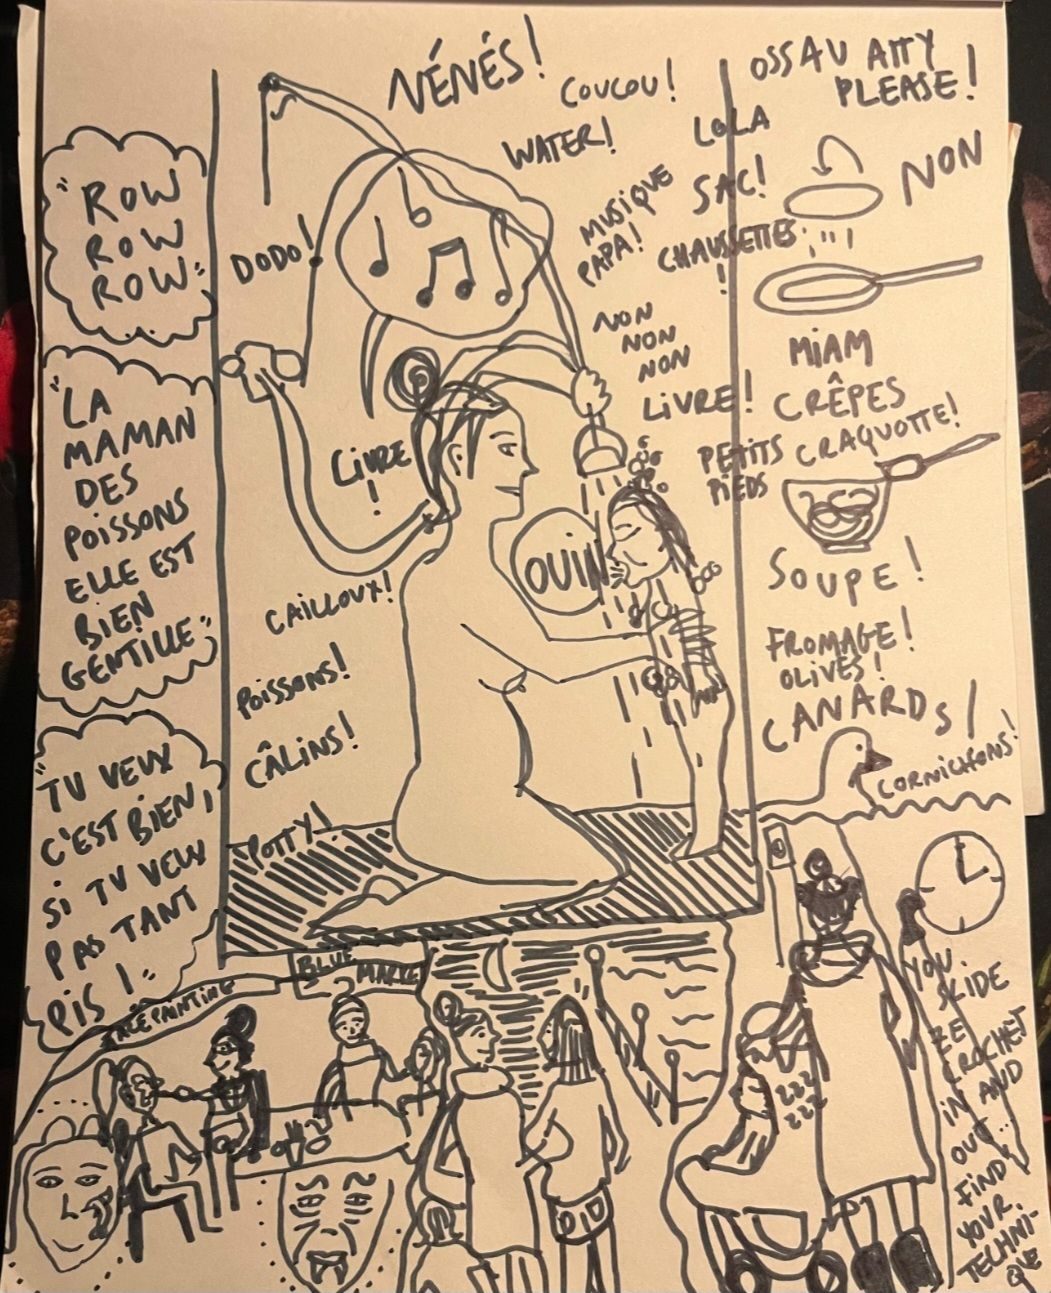 "ROW
ROW
ROW"
"LA
MAMAN
DES
POISSONS
ELLE EST
BIEN
GENTILLE"
"TU VEUX
C'EST BIEN,
SI TU VEUX
PAS TANT
PIS!"
NÉNÉS!
COUCOU!
WATER!
DODO!
MUSIQUE
PAPA!
LOLA
SAC!
CHAUSSETTES
!
NON
NON
NON
LIVRE!
LIVRE
!
PETITS
PIEDS
OUIN
CAILLOUX!
POISSONS!
CÂLINS!
POTTY!
OSSAU ATTY
PLEASE!
NON
MIAM
CRÊPES
CRAQUOTTE!
SOUPE!
FROMAGE!
OLIVES!
CANARDS!
CORNICHONS!
BLUE
ZZZ
ZZZ
YOU
SLIDE
ZE
CROCHET
IN AND
OUT...
FIND
YOUR
TECHNI-
QUE